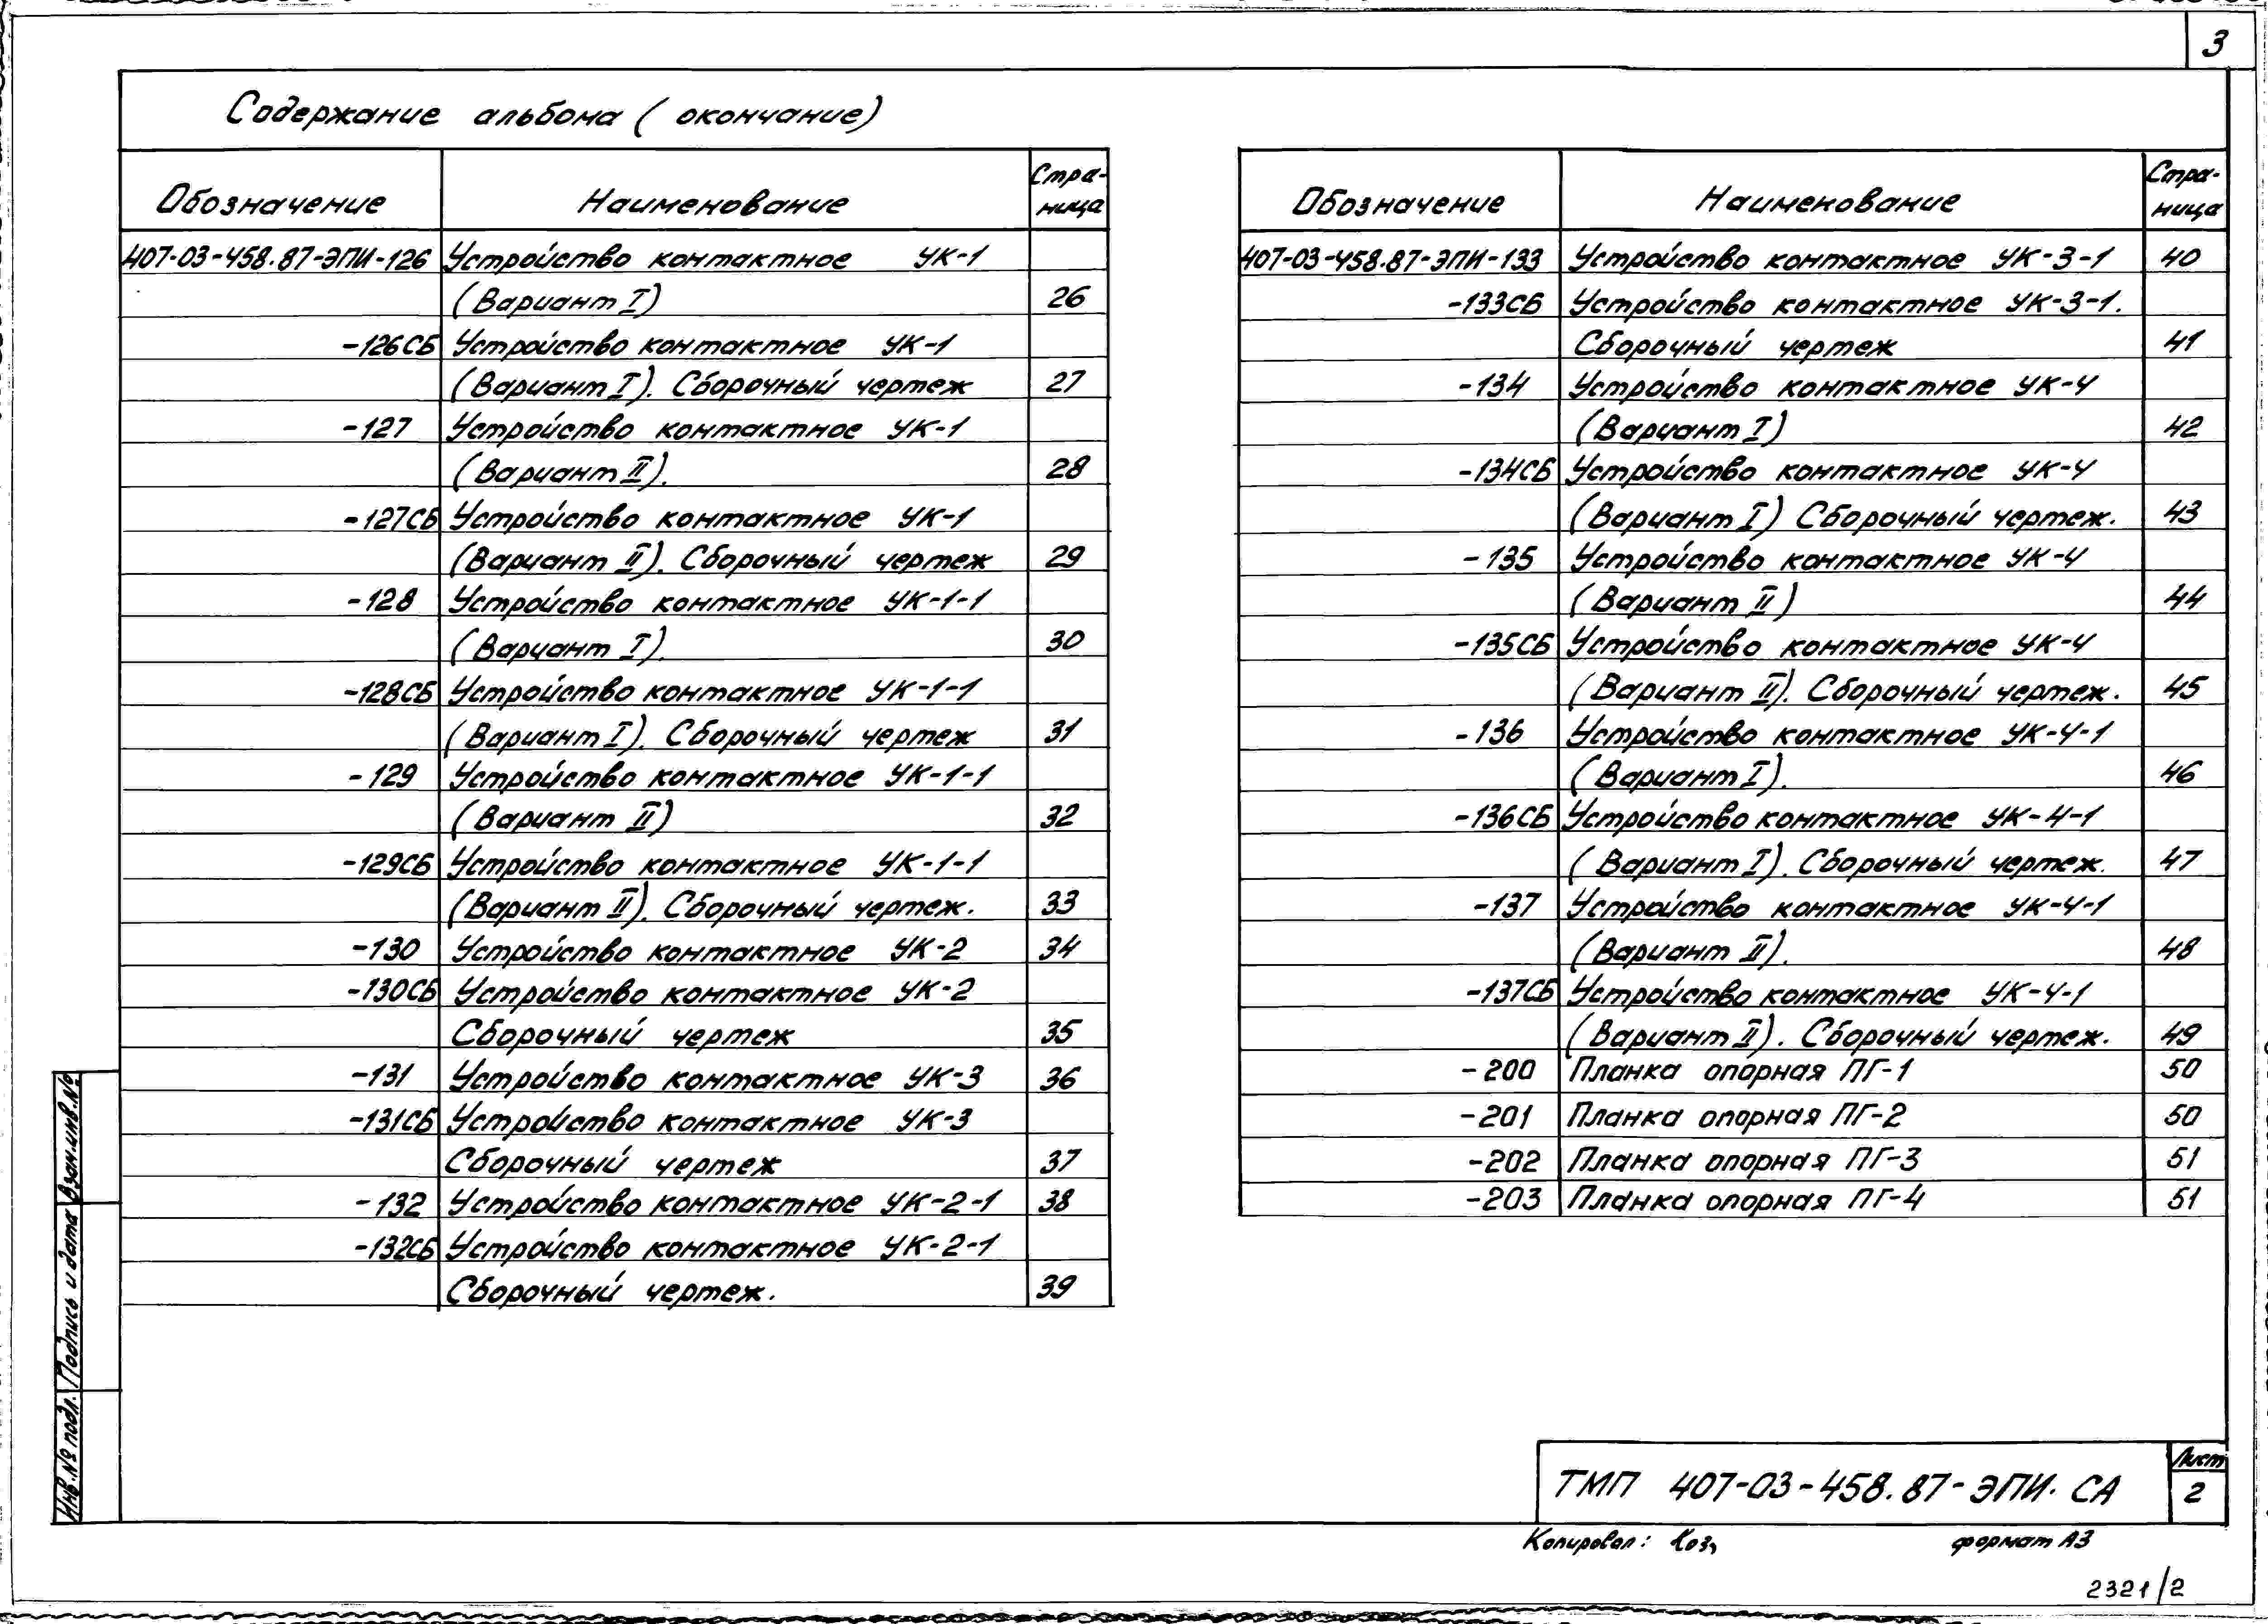 3
Содержание альбома (окончание)
Обозначение Наименование Стра-
ница
407-03-458.87-ЭПИ-126 Устройство контактное УК-1
(Вариант I) 26
-126СБ Устройство контактное УК-1
(Вариант I). Сборочный чертеж 27
-127 Устройство контактное УК-1
(Вариант II). 28
-127СБ Устройство контактное УК-1
(Вариант II). Сборочный чертеж 29
-128 Устройство контактное УК-1-1
(Вариант I). 30
-128СБ Устройство контактное УК-1-1
(Вариант I). Сборочный чертеж 31
-129 Устройство контактное УК-1-1
(Вариант II) 32
-129СБ Устройство контактное УК-1-1
(Вариант II). Сборочный чертеж. 33
-130 Устройство контактное УК-2 34
-130СБ Устройство контактное УК-2
Сборочный чертеж 35
-131 Устройство контактное УК-3 36
-131СБ Устройство контактное УК-3
Сборочный чертеж 37
-132 Устройство контактное УК-2-1 38
-132СБ Устройство контактное УК-2-1
Сборочный чертеж. 39
Обозначение Наименование Стра-
ница
407-03-458.87-ЭПИ-133 Устройство контактное УК-3-1 40
-133СБ Устройство контактное УК-3-1.
Сборочный чертеж 41
-134 Устройство контактное УК-4
(Вариант I) 42
-134СБ Устройство контактное УК-4
(Вариант I) Сборочный чертеж. 43
-135 Устройство контактное УК-4
(Вариант II) 44
-135СБ Устройство контактное УК-4
(Вариант II). Сборочный чертеж. 45
-136 Устройство контактное УК-4-1
(Вариант I). 46
-136СБ Устройство контактное УК-4-1
(Вариант I). Сборочный чертеж. 47
-137 Устройство контактное УК-4-1
(Вариант II). 48
-137СБ Устройство контактное УК-4-1
(Вариант II). Сборочный чертеж. 49
-200 Планка опорная ПГ-1 50
-201 Планка опорная ПГ-2 50
-202 Планка опорная ПГ-3 51
-203 Планка опорная ПГ-4 51
Взам.инв.№
Подпись и дата
Инв.№ подл.
ТМП 407-03-458.87-ЭПИ. СА
Лист
2
Копировал: формат А3
2321/2